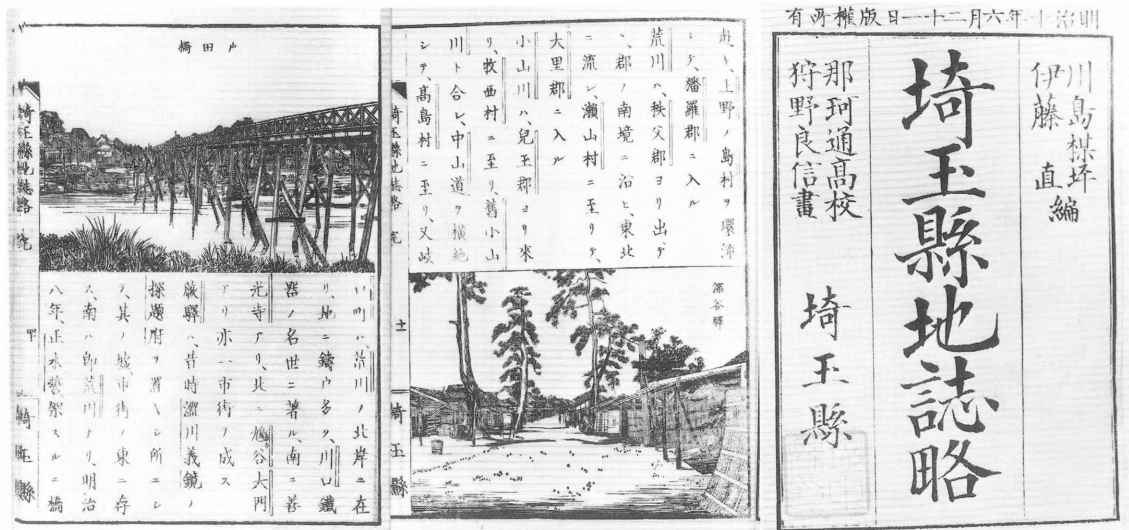 明治十年六月二十一日版權所有
川島楳坪
伊藤直編
埼玉縣地誌略
那珂通高校
狩野良信畫
埼玉縣
上野ノ島村ヲ環流
シテ、播羅郡ニ入ル
荒川ハ、秩父郡ヨリ出デ
、郡ノ南境ニ沿ヒ、東北
ニ流レ、瀬山村ニ至リテ、
大里郡ニ入ル
小山川ハ、兒玉郡ヨリ來
リ、牧西村ニ至リ、舊小山
川ト合シ、中山道ヲ横絶
シテ、髙島村ニ至リ、又岐
深谷驛
埼玉縣地誌略 完
十一
埼玉縣
戸田橋
町ハ、荒川ノ北岸ニ在
リ、地ニ鑄戸多ク、川口鐵
器ノ名世ニ著ル、南ニ善
光寺アリ、北ニ鳩谷大門
アリ亦一市街ヲ成ス
蕨驛ハ、昔時澁川義鏡ノ
探題府ヲ置キシ所ニシ
テ、其ノ墟市街ノ東ニ存
ス、南ハ即荒川ナリ、明治
八年、正木誓架スルニ橋
埼玉縣地誌略 完
埼玉縣